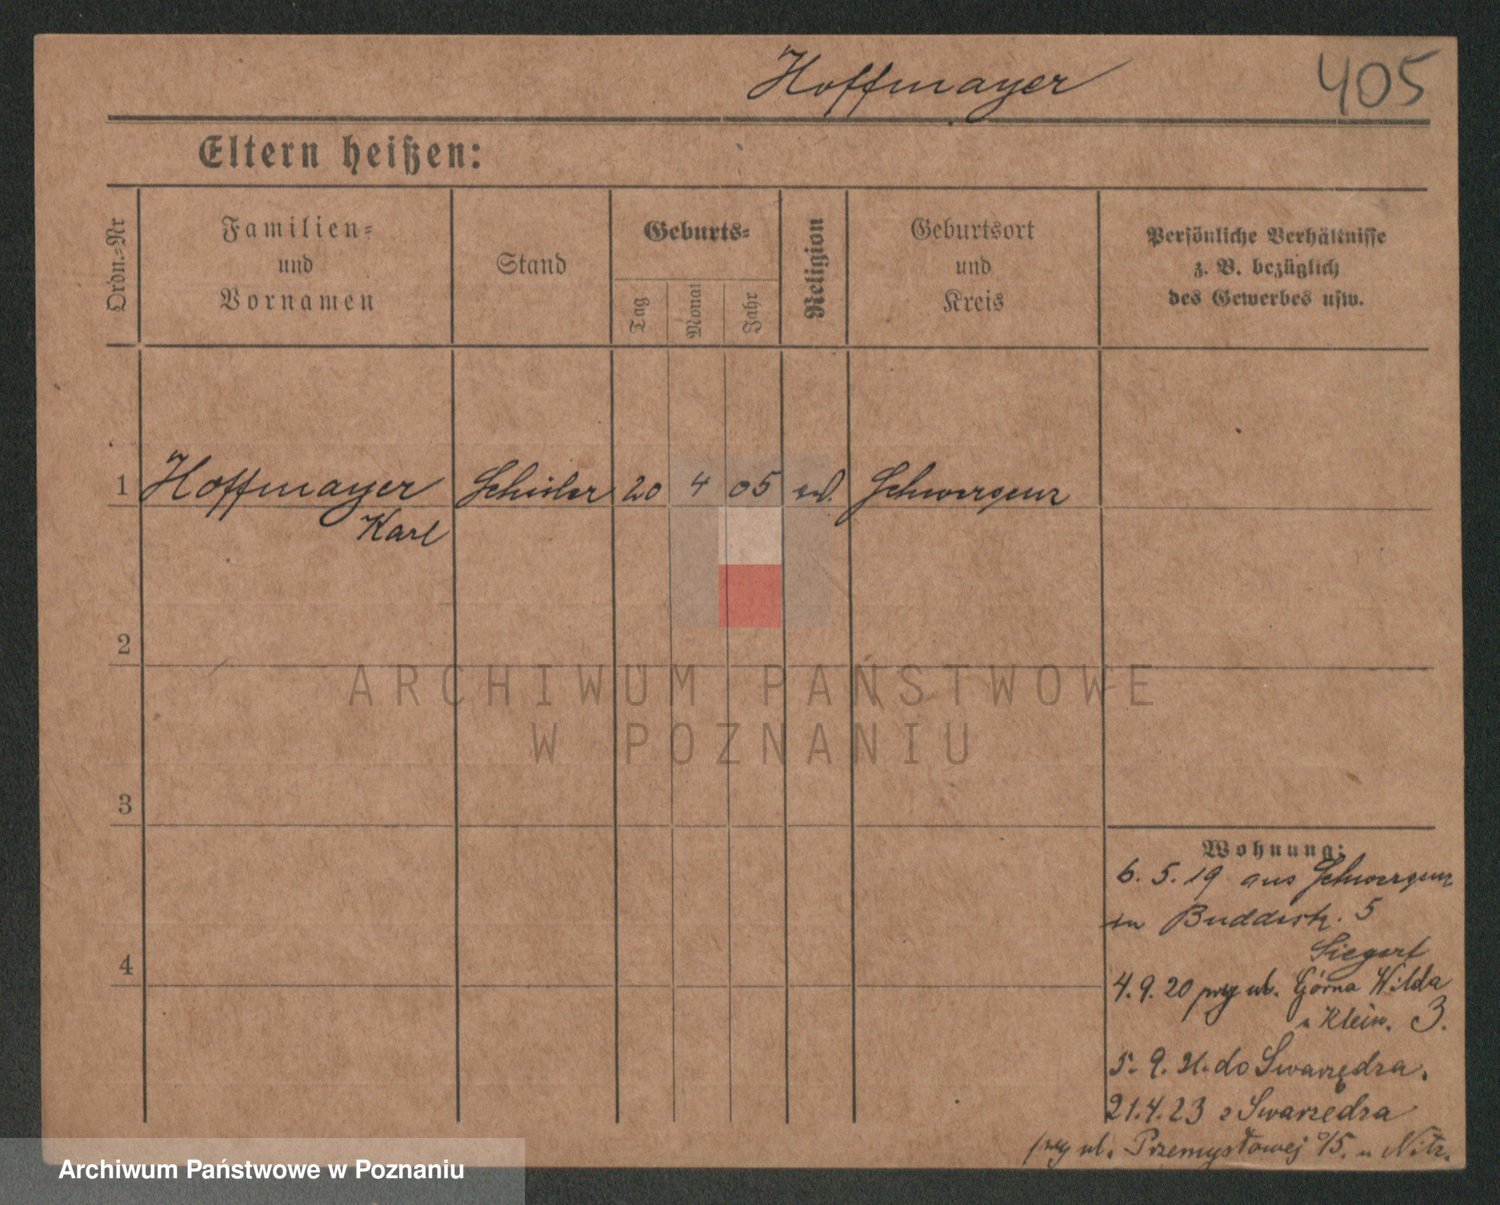 Hoffmayer 405
Eltern heißen:
Ordn.-Nr
Familien-
und
Vornamen
Stand
Geburts-
Tag
Monat
Jahr
Religion
Geburtsort
und
Kreis
Persönliche Verhältnisse
z. B. bezüglich
des Gewerbes usw.
1 Hoffmayer Schüler 20 4 05 ev. Schwersenz
Karl
2
ARCHIWUM PAŃSTWOWE
W POZNANIU
3
Wohnung:
6. 5. 19 aus Schwersenz
in Buddestr. 5
Siegert
4
4. 9. 20 przy ul. Górna Wilda
u Klein. 3.
5. 9. 21. do Swarzędza.
21.4.23 z Swarzędza
przy ul. Przemysłowej /5. u Nitz.
Archiwum Państwowe w Poznaniu